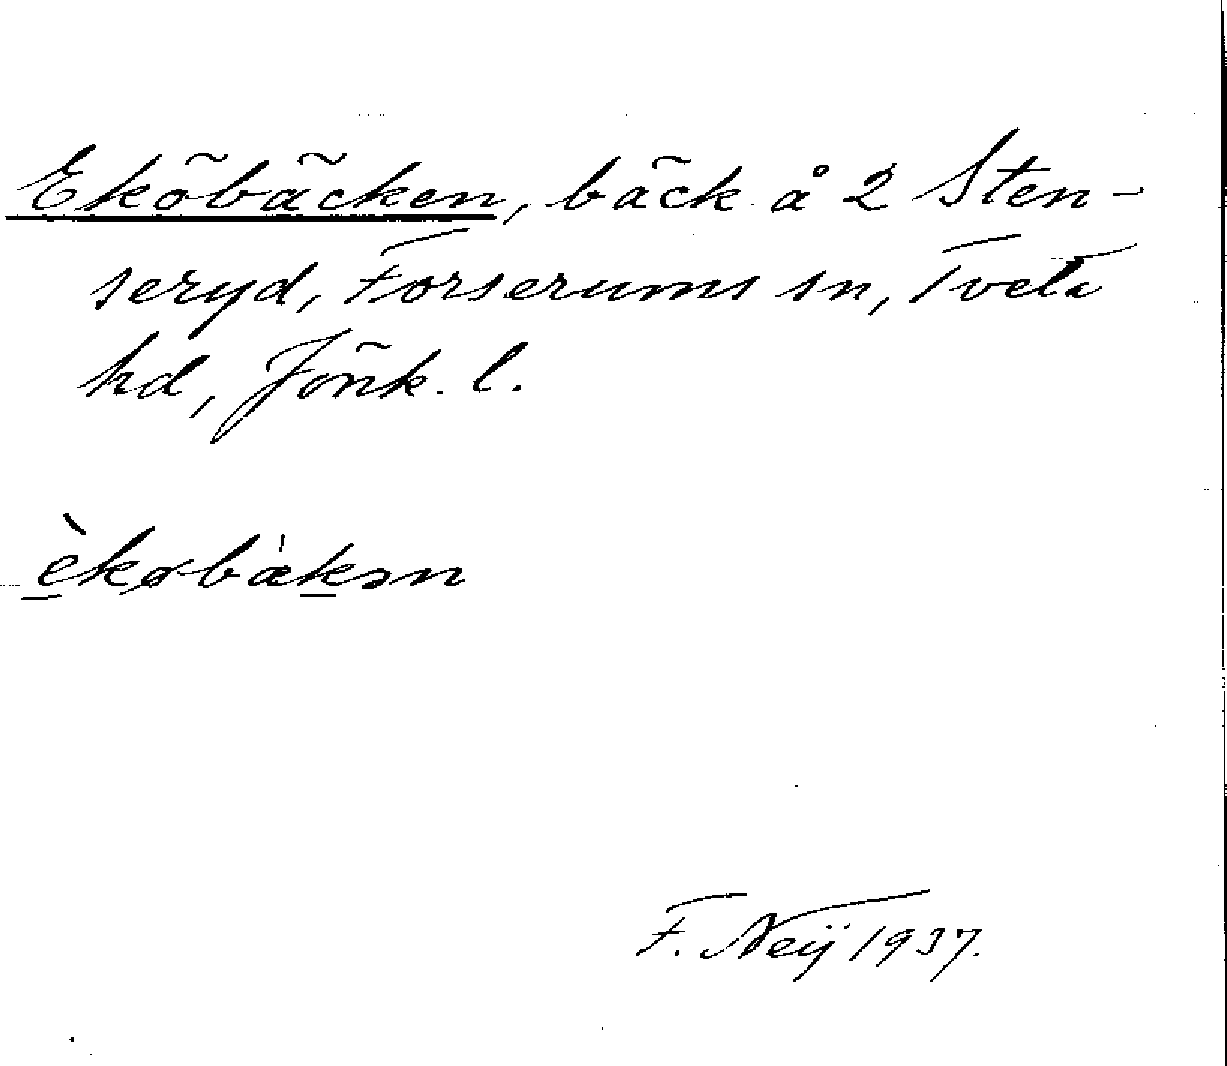 Eköbäcken, bäck å 2 Sten-
seryd, Forserums sn, Tveta
hd, Jönk. l.
èkøbàkən
F. Neÿ 1937.